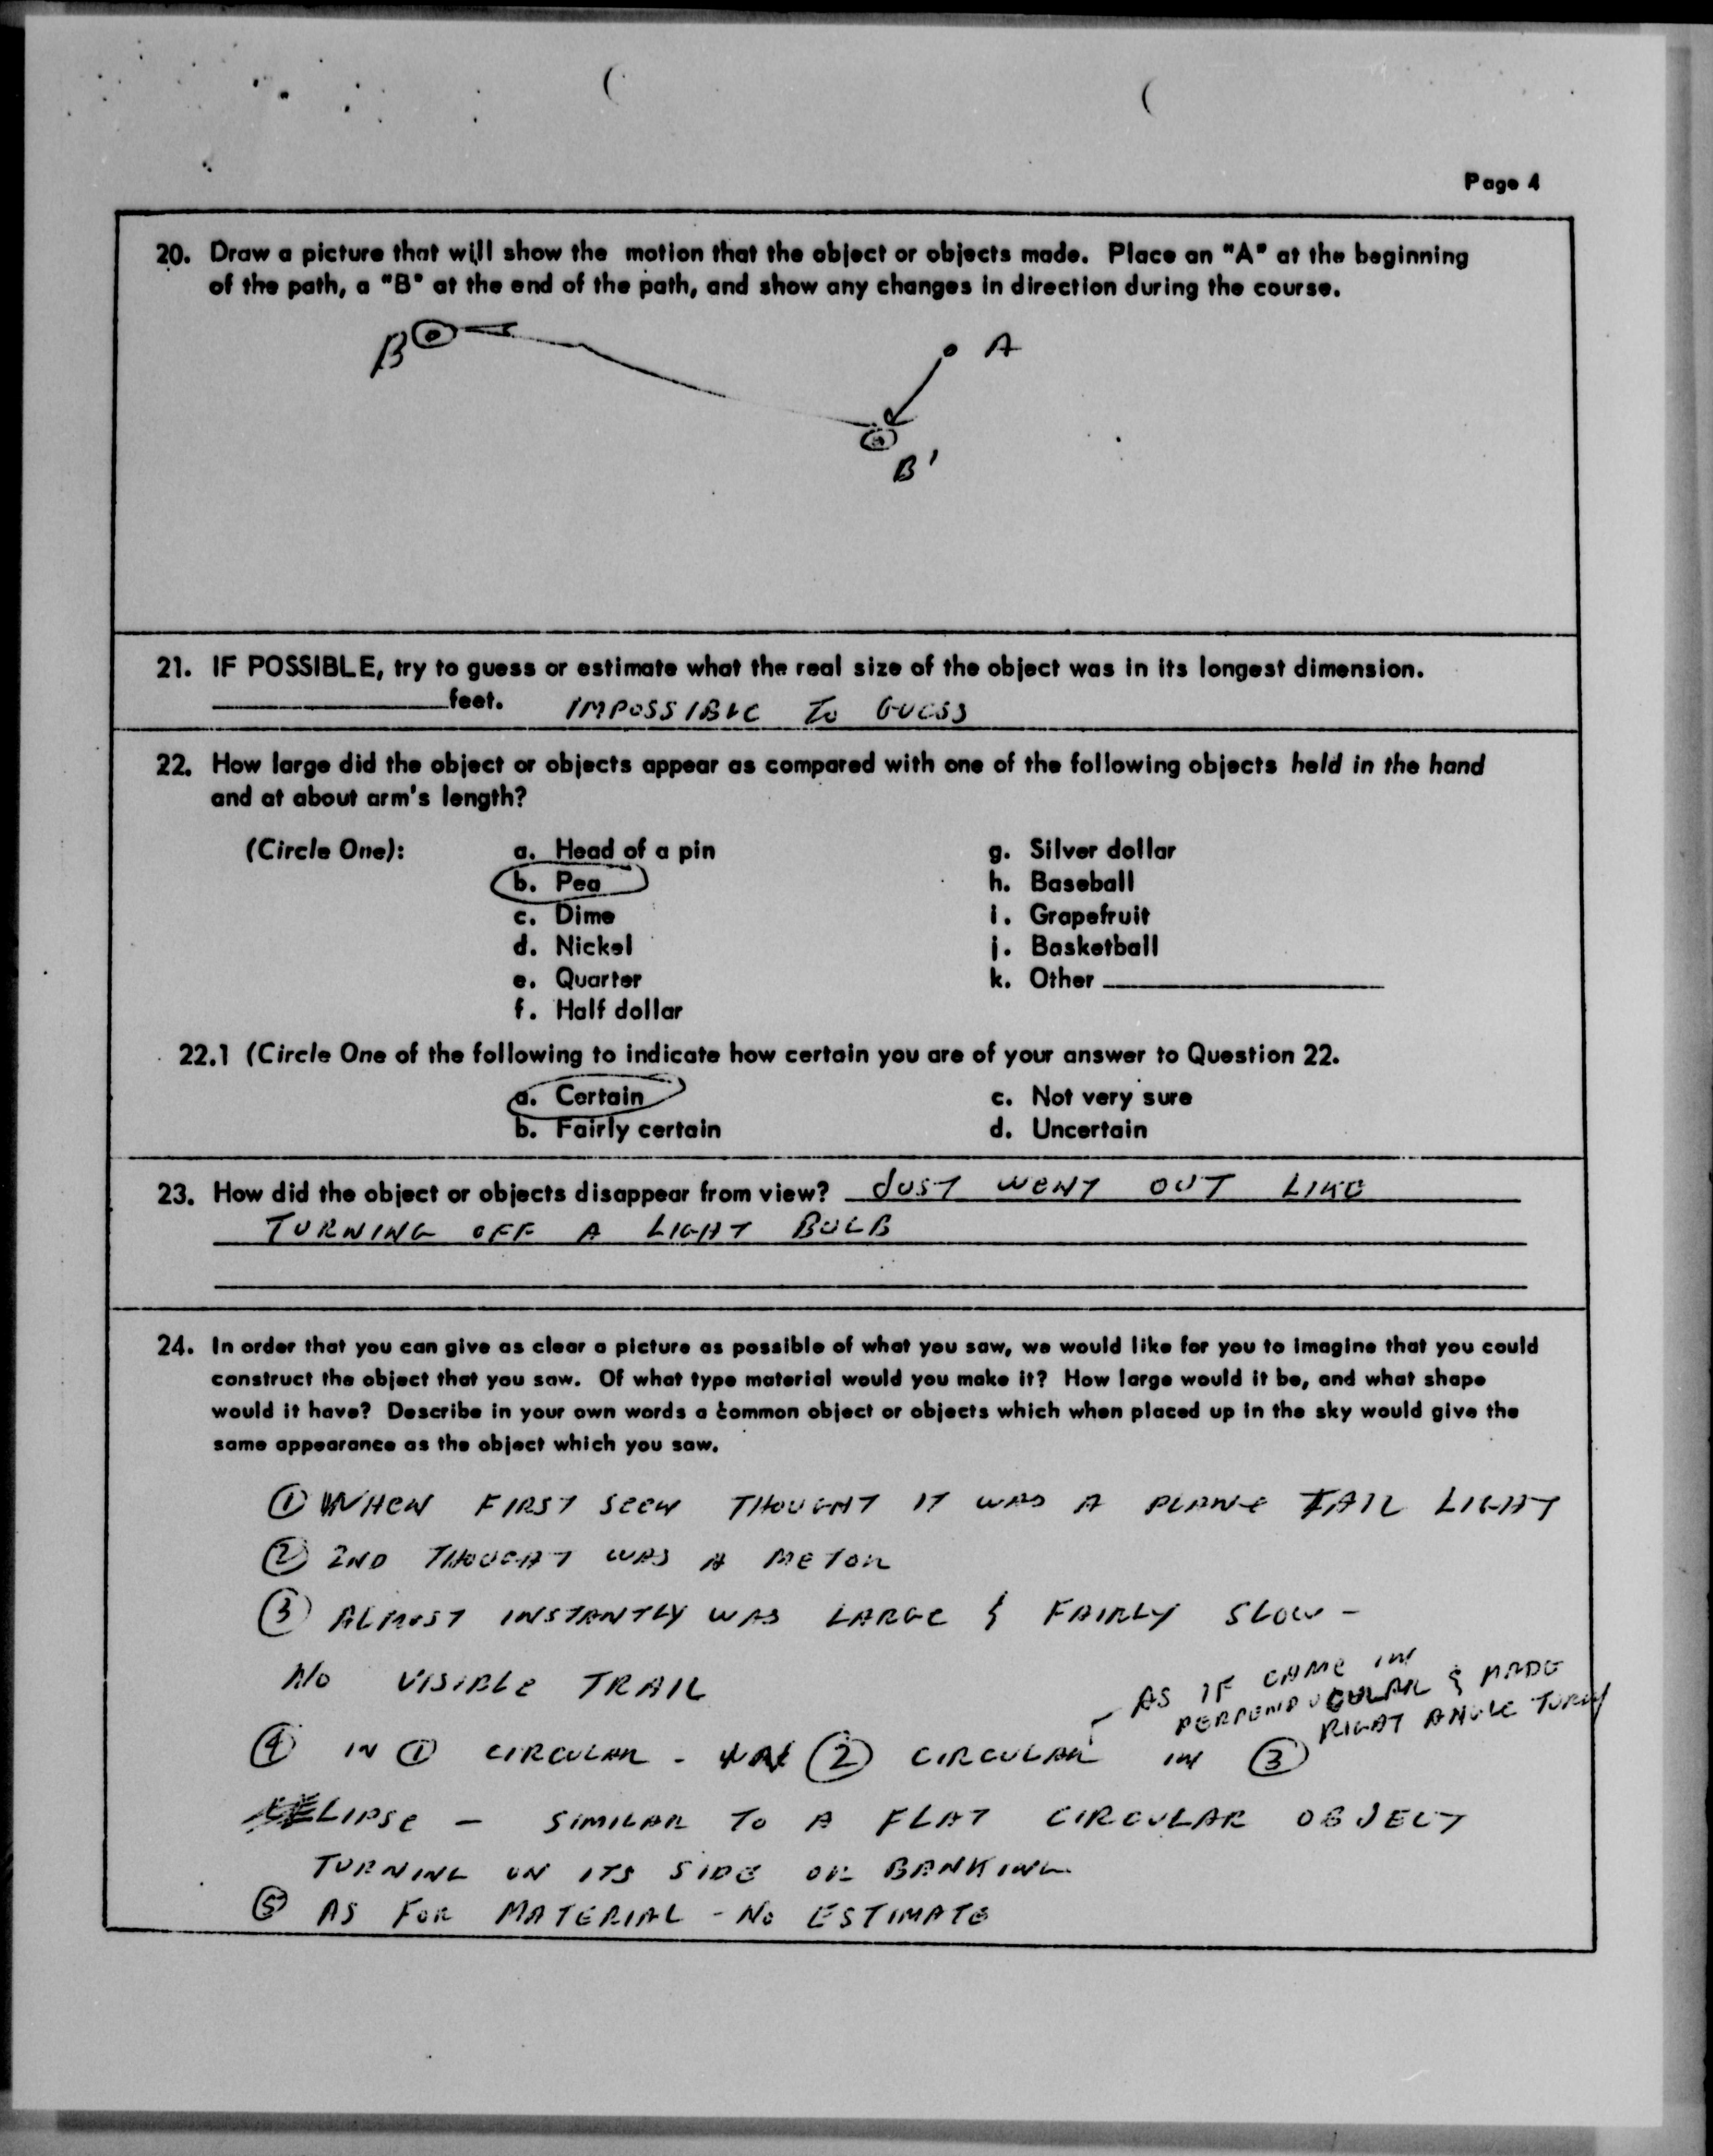 Page 4
20. Draw a picture that will show the motion that the object or objects made. Place an "A" at the beginning
of the path, a "B" at the end of the path, and show any changes in direction during the course.
B
A
B'
21. IF POSSIBLE, try to guess or estimate what the real size of the object was in its longest dimension.
feet. IMPOSSIBLE TO GUESS
22. How large did the object or objects appear as compared with one of the following objects held in the hand
and at about arm's length?
(Circle One): a. Head of a pin g. Silver dollar
b. Pea h. Baseball
c. Dime i. Grapefruit
d. Nickel j. Basketball
e. Quarter k. Other
f. Half dollar
22.1 (Circle One of the following to indicate how certain you are of your answer to Question 22.
a. Certain c. Not very sure
b. Fairly certain d. Uncertain
23. How did the object or objects disappear from view? JUST WENT OUT LIKE
TURNING OFF A LIGHT BULB
24. In order that you can give as clear a picture as possible of what you saw, we would like for you to imagine that you could
construct the object that you saw. Of what type material would you make it? How large would it be, and what shape
would it have? Describe in your own words a common object or objects which when placed up in the sky would give the
same appearance as the object which you saw.
① WHEN FIRST SEEN THOUGHT IT WAS A PLANE TAIL LIGHT
② 2ND THOUGHT WAS A METOR
③ ALMOST INSTANTLY WAS LARGE & FAIRLY SLOW -
NO VISIBLE TRAIL
AS IF CAME IN
PERPENDUCULAR & MADE
RIGHT ANGLE TURN
④ IN ① CIRCULAR - ② CIRCULAR IN ③
ELIPSE - SIMILAR TO A FLAT CIRCULAR OBJECT
TURNING ON ITS SIDE OR BANKING
⑤ AS FOR MATERIAL - NO ESTIMATE